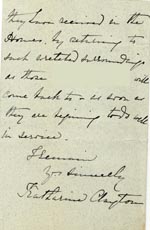 they have received in the
Homes, by returning to
such wretched surroundings
as those will
come back to us as soon as
they are beginning to do well
in service.
I remain
yrs sincerely
Katharine Clayton